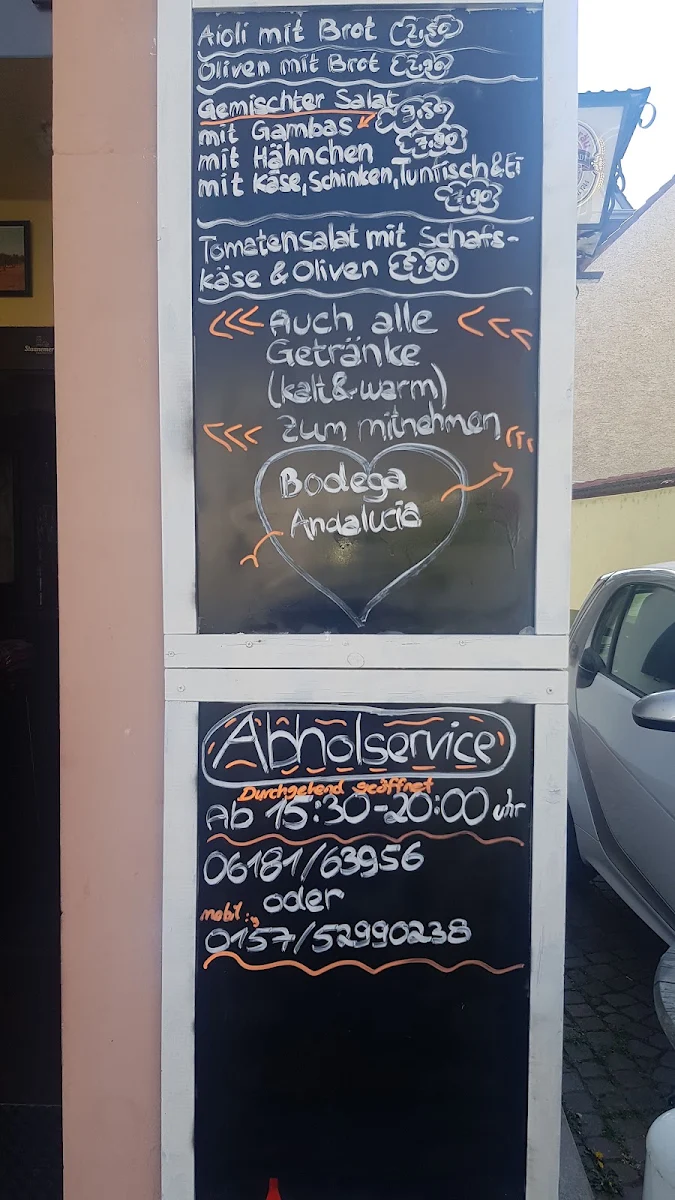 Aioli mit Brot 2,50
Oliven mit Brot 2,90
Gemischter Salat
mit Gambas 9,50
mit Hähnchen 7,90
mit Käse, Schinken, Tunfisch & Ei
7,90
Tomatensalat mit Schafs-
käse & Oliven 5,90
Auch alle
Getränke
(kalt & warm)
zum mitnehmen
Bodega
Andalucia
Abholservice
Durchgehend geöffnet
Ab 15:30-20:00 uhr
06181/63956
oder
mobil:
0157/52990238